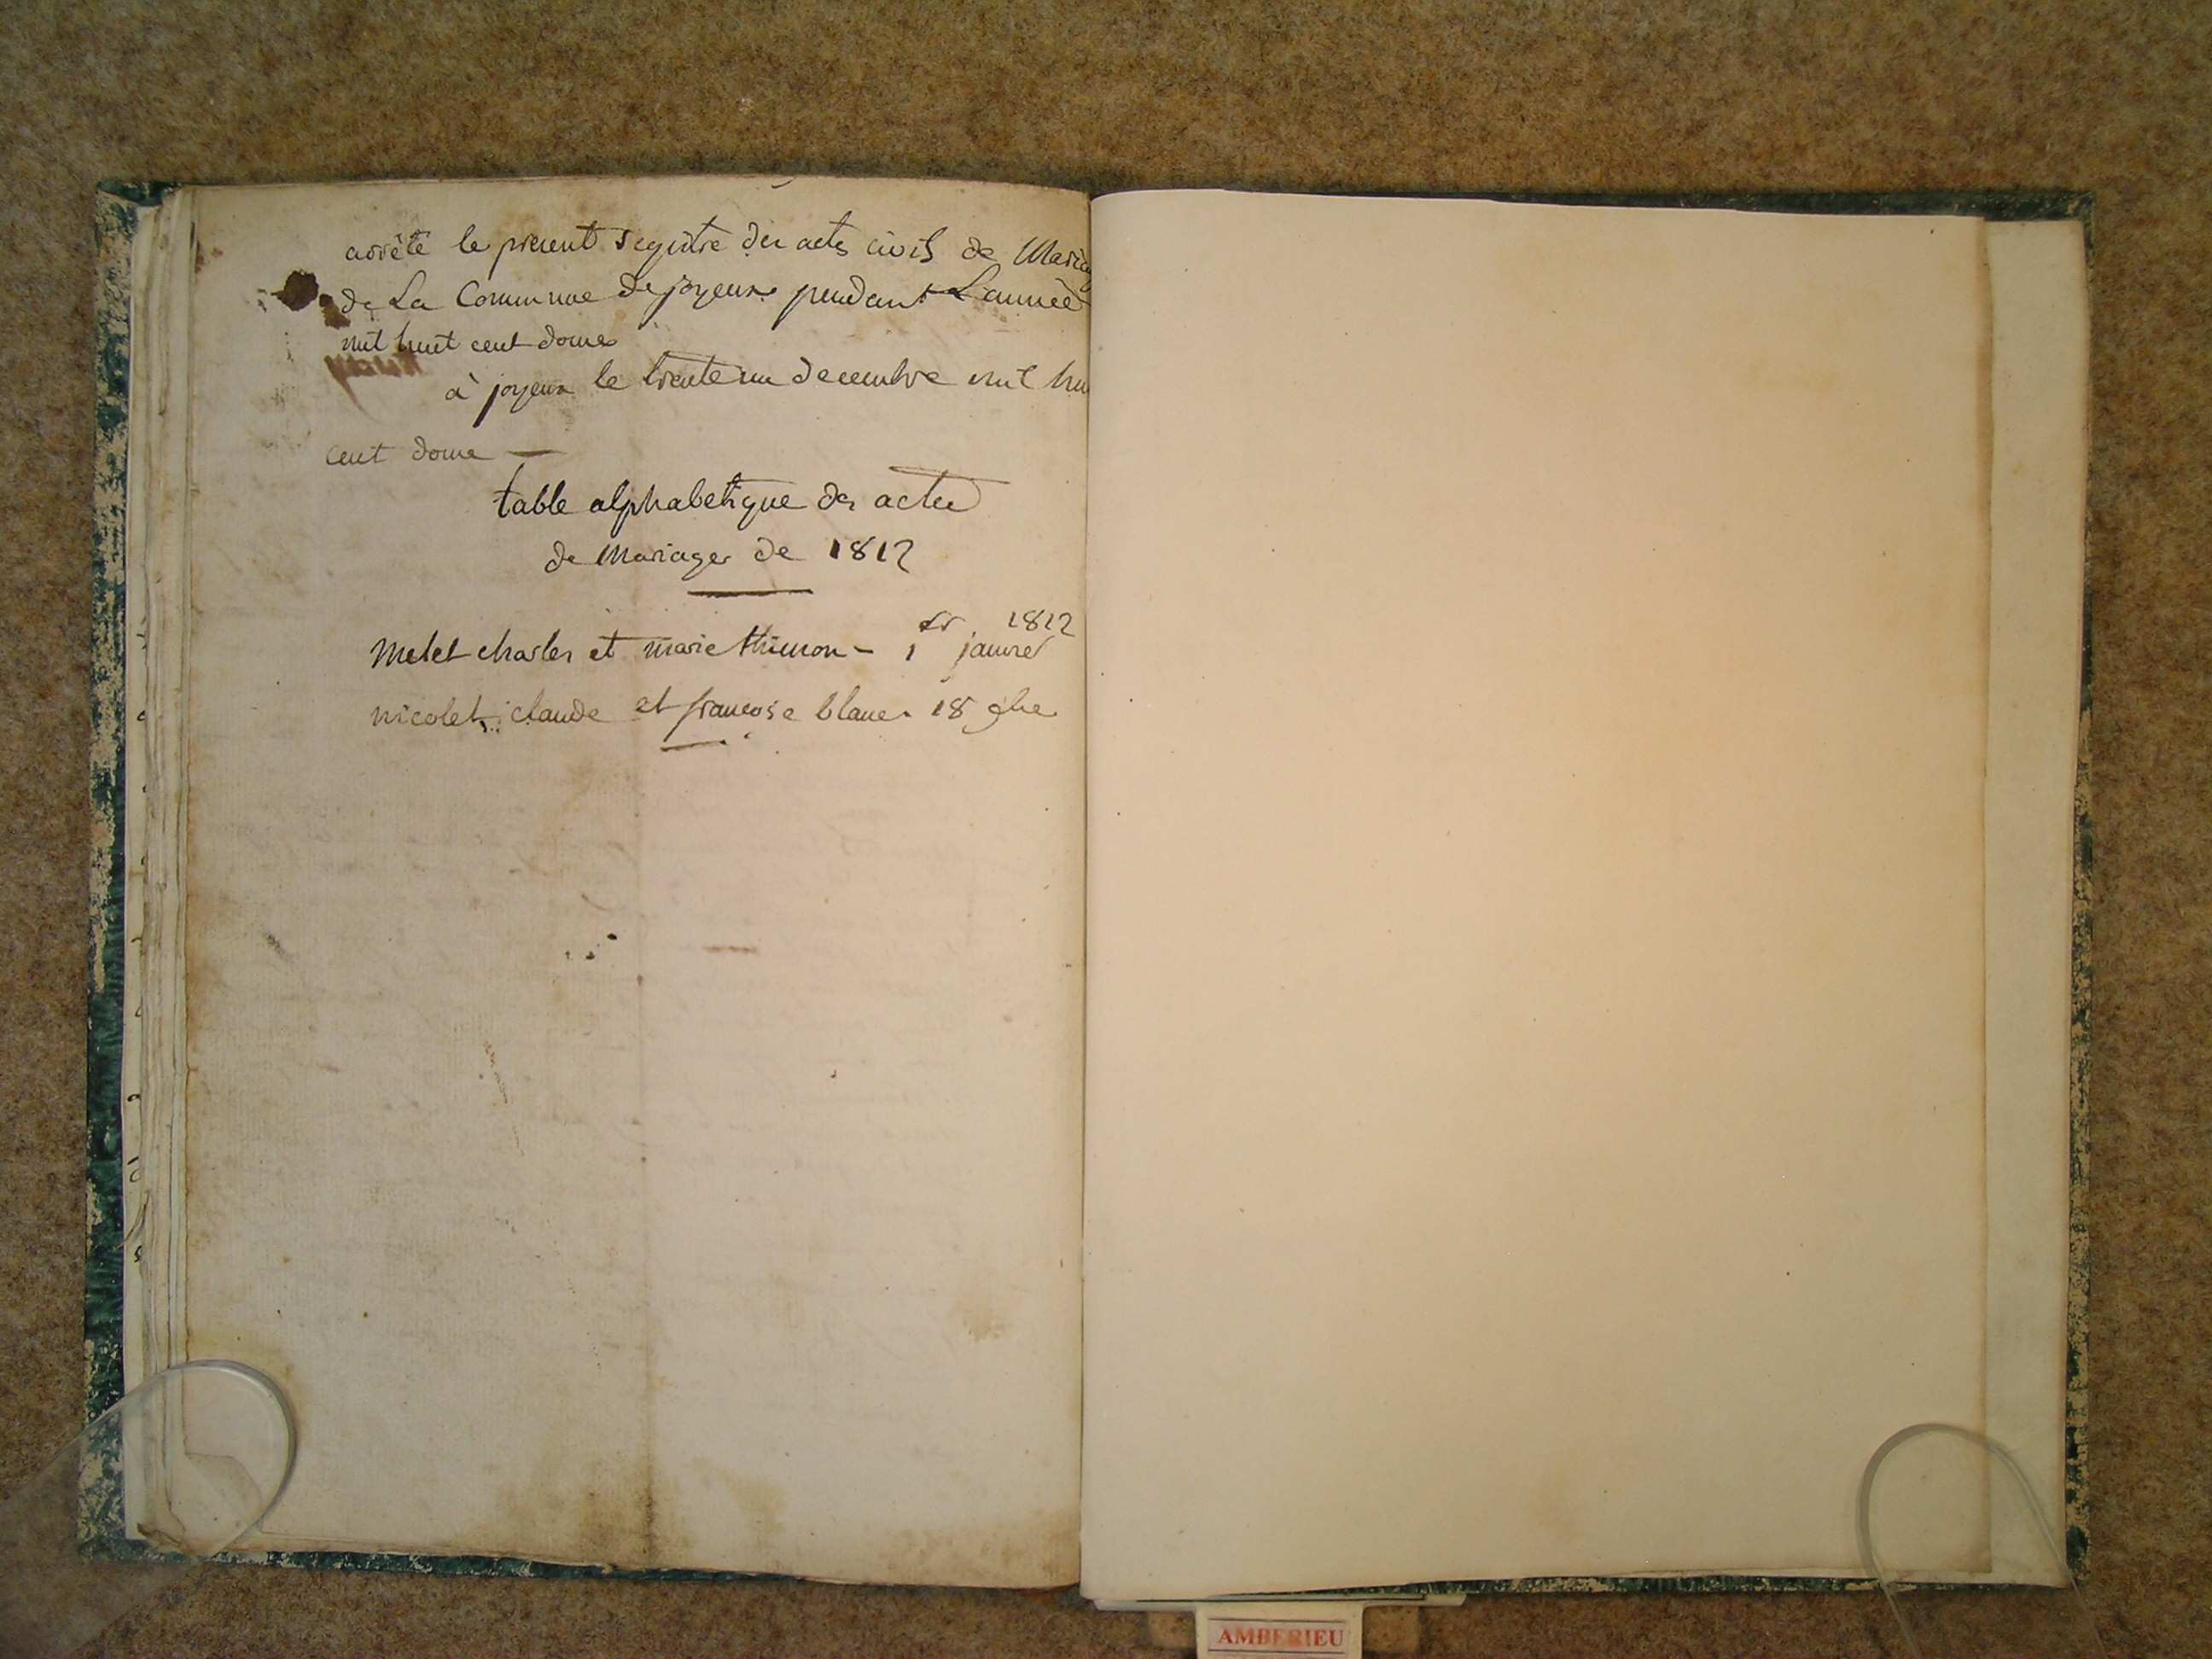 arrêté le present registre des actes civils de Mariag
de La Commune de joyeux pendant L'année
mil huit cent douze
à joyeux le trente un decembre mil hui
cent douze —
table alphabetique des actes
de Mariages de 1812
1812
Melet charles et marie thimon - 1er janvier
nicolet claude et francoise blanc 18 9bre
AMBERIEU